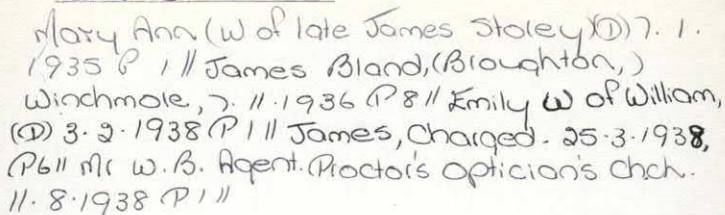 Mary Ann (W of late James Stoley)(D) 7. 1.
1935 P 1 // James Bland, (Broughton,)
Winchmole, 7. 11. 1936 P 8 // Emily W of William,
(D) 3. 2. 1938 P 1 // James, Charged. 25. 3. 1938,
P6 // Mr W. B. Agent. Proctor's Opticians Chch.
11. 8. 1938 P 1 //